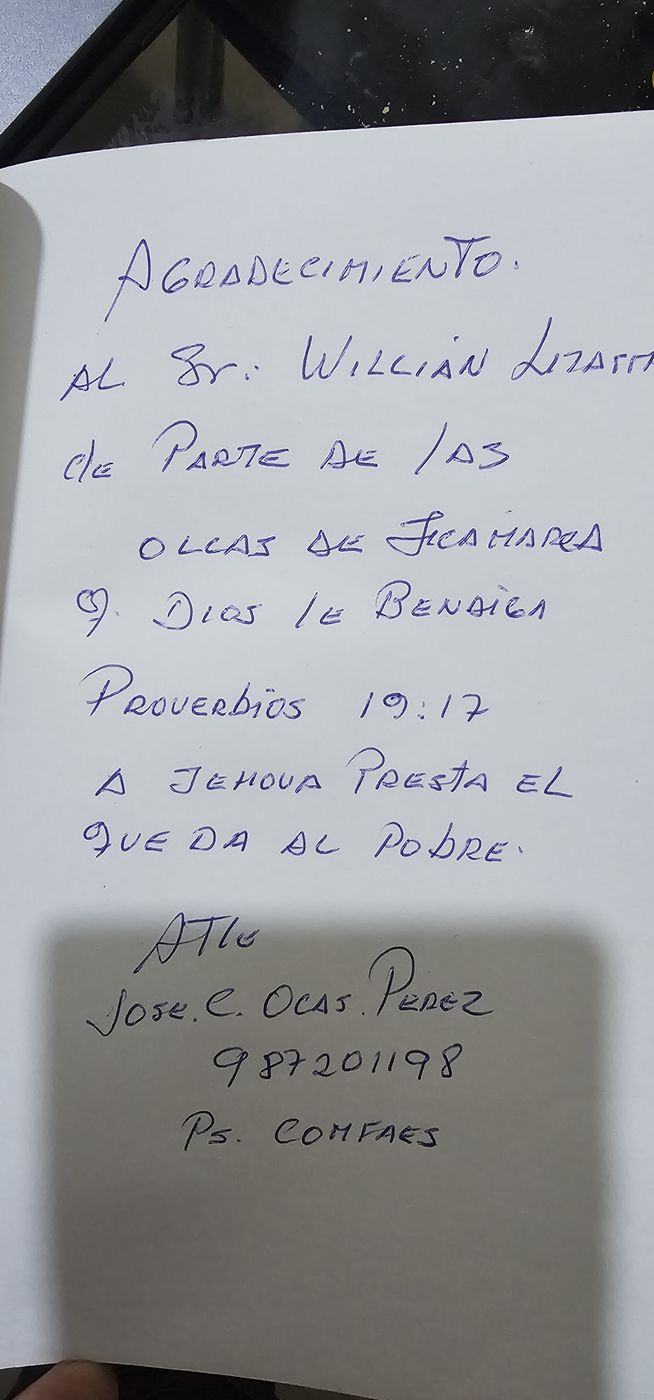 AGRADECIMIENTO.
AL Sr: WILLIÁN
de PARTE DE lAS
OLLAS DE JICAMARCA
Q. DIOS lE BENDIGA
PROVERbIOS 19:17
A JEHOVA PRESTA EL
QUE DA AL PObRE.
ATTe
JOSE. C. OCAS. PEREZ
987201198
Ps. COMFAES